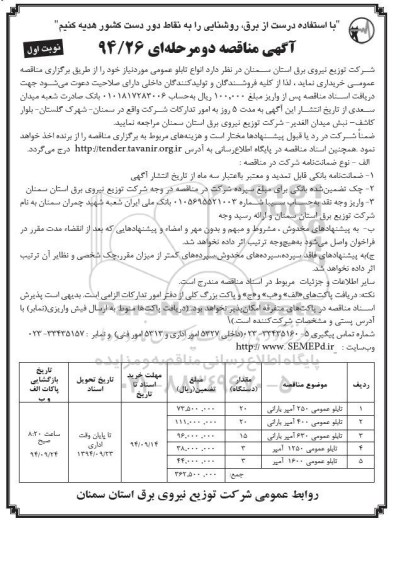 "با استفاده درست از برق، روشنایی را به نقاط دور دست کشور هدیه کنیم"
آگهی مناقصه دومرحله‌ای ۹۴/۲۶
نوبت اول
شرکت توزیع نیروی برق استان سمنان در نظر دارد انواع تابلو عمومی موردنیاز خود را از طریق برگزاری مناقصه
عمومی خریداری نماید ، لذا از کلیه فروشندگان و تولیدکنندگان داخلی دارای صلاحیت دعوت می‌شود جهت
دریافت اسناد مناقصه پس از واریز مبلغ ۱۰۰,۰۰۰ ریال به‌حساب ۰۱۰۱۸۱۷۲۸۳۰۰۶ بانک صادرات شعبه میدان
سعدی از تاریخ انتشار این آگهی به مدت ۵ روز به امور تدارکات شرکت واقع در سمنان- شهرک گلستان- بلوار
کاشف- نبش میدان الغدیر- شرکت توزیع نیروی برق استان سمنان مراجعه نمایید.
ضمناً شرکت در رد یا قبول پیشنهادها مختار است و هزینه‌های مربوط به برگزاری مناقصه را از برنده اخذ خواهد
نمود .همچنین اسناد مناقصه در پایگاه اطلاع‌رسانی به آدرس http://tender.tavanir.org.ir درج می‌گردد.
الف - نوع ضمانت‌نامه شرکت در مناقصه :
۱- ضمانت‌نامه بانکی قابل تمدید و معتبر بااعتبار سه ماه از تاریخ انتشار آگهی
۲- چک تضمین‌شده بانکی برای مبلغ سپرده شرکت در مناقصه در وجه شرکت توزیع نیروی برق استان سمنان
۳- واریز وجه نقد به‌حساب سیبا شماره ۰۱۰۵۶۹۵۵۲۱۰۰۳ بانک ملی ایران شعبه شهید چمران سمنان به نام
شرکت توزیع برق استان سمنان و ارائه رسید وجه
ب- به پیشنهادهای مخدوش ، مشروط و مبهم و بدون مهر و امضاء و پیشنهادهایی که بعد از انقضاء مدت مقرر در
فراخوان واصل می‌شود به‌هیچ‌وجه ترتیب اثر داده نخواهد شد.
ج)به پیشنهادهای فاقد سپرده،سپرده‌های مخدوش،سپرده‌های کمتر از میزان مقرر،چک شخصی و نظایر آن ترتیب
اثر داده نخواهد شد.
سایر اطلاعات و جزئیات مربوط در اسناد مناقصه مندرج است.
نکته: دریافت پاکت‌های«الف» و«ب» و«ج» و پاکت بزرگ کلی از دفتر امور تدارکات الزامی است. بدیهی است پذیرش
اسناد مناقصه در پاکت‌های متفرقه امکان‌پذیر نخواهد بود. (دریافت پاکت‌ها منوط به ارسال فیش واریزی(نمابر) با
آدرس پستی و مشخصات شرکت‌کننده است.)
شماره تماس پیگیری ۵-۳۳۴۴۵۱۶۰-۰۲۳(داخلی ۵۳۲۷ امور اداری و ۵۳۱۳ امور فنی) و نمابر : ۳۳۴۳۵۱۵۷-۰۲۳
وب‌سایت : http:// www. SEMEPd.ir
ردیف | موضوع مناقصه | مقدار (دستگاه) | مبلغ تضمین(ریال) | مهلت خرید اسناد تا تاریخ | تاریخ تحویل اسناد | تاریخ بازگشایی پاکات الف و ب
۱ | تابلو عمومی ۲۵۰ آمپر بارانی | ۲۰ | ۷۳,۵۰۰,۰۰۰ | ۹۴/۰۹/۱۴ | تا پایان وقت اداری ۱۳۹۴/۰۹/۲۳ | ساعت ۸:۲۰ صبح ۹۴/۰۹/۲۴
۲ | تابلو عمومی ۴۰۰ آمپر بارانی | ۲۰ | ۱۱۱,۰۰۰,۰۰۰
۳ | تابلو عمومی ۶۳۰ آمپر بارانی | ۱۵ | ۹۶,۰۰۰,۰۰۰
۴ | تابلو عمومی ۱۲۵۰ آمپر | ۳ | ۳۸,۰۰۰,۰۰۰
۵ | تابلو عمومی ۱۶۰۰ آمپر | ۳ | ۴۴,۰۰۰,۰۰۰
جمع: ۳۶۲,۵۰۰,۰۰۰
روابط عمومی شرکت توزیع نیروی برق استان سمنان